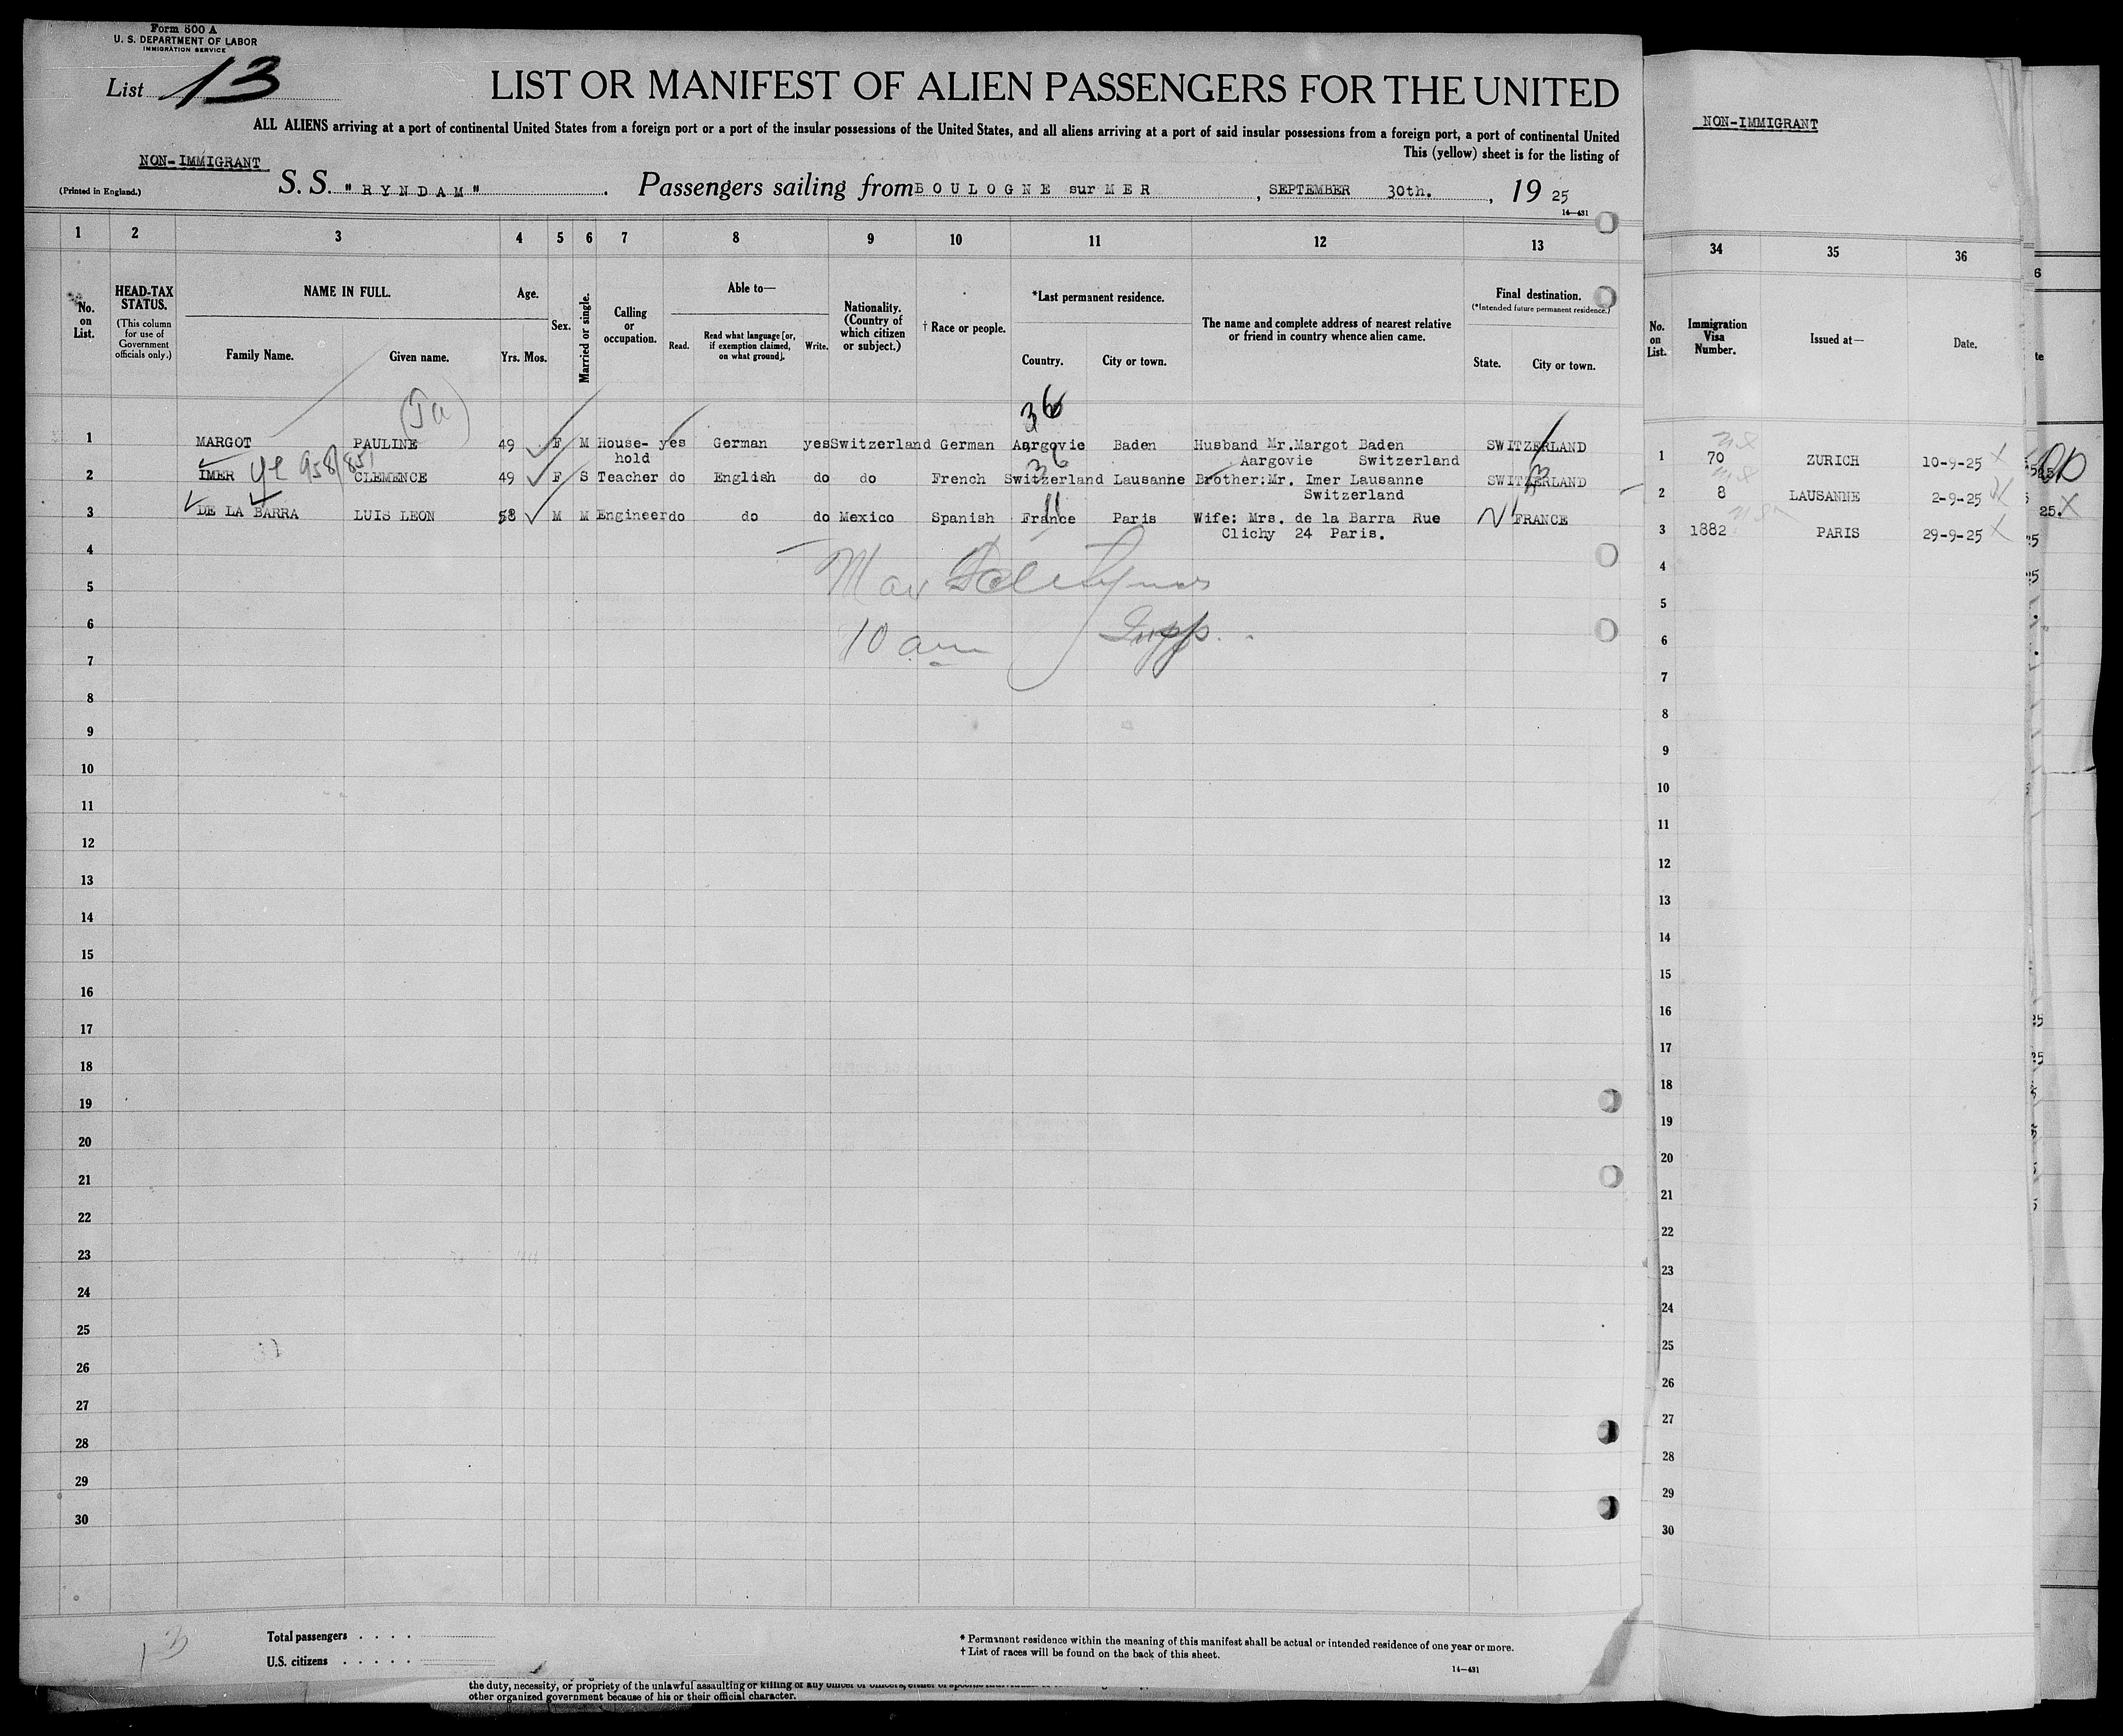 Form 500 A
U. S. DEPARTMENT OF LABOR
IMMIGRATION SERVICE
List 13
LIST OR MANIFEST OF ALIEN PASSENGERS FOR THE UNITED
ALL ALIENS arriving at a port of continental United States from a foreign port or a port of the insular possessions of the United States, and all aliens arriving at a port of said insular possessions from a foreign port, a port of continental United
This (yellow) sheet is for the listing of
NON-IMMIGRANT
(Printed in England.)
S. S. "RYNDAM". Passengers sailing from BOULOGNE sur MER, SEPTEMBER 30th., 19 25
14—431
1 2 3 4 5 6 7 8 9 10 11 12 13
No. on List.
HEAD-TAX STATUS.
(This column for use of Government officials only.)
NAME IN FULL.
Family Name. Given name.
Age.
Yrs. Mos.
Sex.
Married or single.
Calling or occupation.
Able to—
Read. Read what language [or, if exemption claimed, on what ground]. Write.
Nationality. (Country of which citizen or subject.)
† Race or people.
*Last permanent residence.
Country. City or town.
The name and complete address of nearest relative or friend in country whence alien came.
Final destination.
(*Intended future permanent residence.)
State. City or town.
36
1 MARGOT PAULINE 49 F M House- yes German yes Switzerland German Aargovie Baden Husband Mr.Margot Baden SWITZERLAND
hold Aargovie Switzerland
36
2 IMER CLEMENCE 49 F S Teacher do English do do French Switzerland Lausanne Brother:Mr. Imer Lausanne SWITZERLAND
Switzerland
11
3 DE LA BARRA LUIS LEON 58 M M Engineer do do do Mexico Spanish France Paris Wife: Mrs. de la Barra Rue FRANCE
Clichy 24 Paris.
4
5
6
10 am
7
8
9
10
11
12
13
14
15
16
17
18
19
20
21
22
23
24
25
26
27
28
29
30
Total passengers . . . .
U.S. citizens . . . . .
13
* Permanent residence within the meaning of this manifest shall be actual or intended residence of one year or more.
† List of races will be found on the back of this sheet.
14—431
the duty, necessity, or propriety of the unlawful assaulting or killing of any officer or officers, either of specific
other organized government because of his or their official character.
NON-IMMIGRANT
34 35 36
No. on List.
Immigration Visa Number.
Issued at—
Date.
1 70 ZURICH 10-9-25
2 8 LAUSANNE 2-9-25
3 1882 PARIS 29-9-25
4
5
6
7
8
9
10
11
12
13
14
15
16
17
18
19
20
21
22
23
24
25
26
27
28
29
30